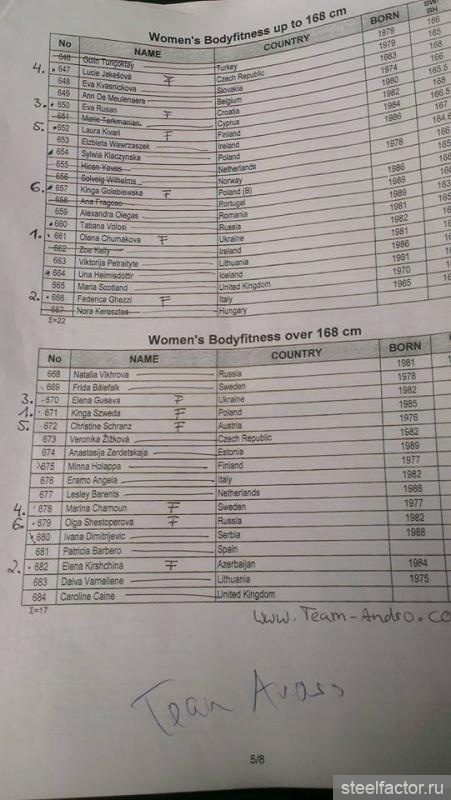 Women's Bodyfitness up to 168 cm
No NAME COUNTRY BORN BH
646 Gülin Tunçoktay Turkey 1979 166
4. 647 Lucie Jakešová F Czech Republic 1979 165
648 Eva Kvasnickova Slovakia 1963 168
649 Ann De Meulenaere Belgium 1974 165.5
3. 650 Eva Rusan F Croatia 1980 168
651 Marie Terkmanian Cyprus 1982 166.5
5. 652 Laura Kivari F Finland 1984 167
653 Elzbieta Wawrzaszek Ireland 1986
654 Sylwia Klaczynska Poland
655 Netherlands 1978
656 Solveig Wilhelms Norway
6. 657 Kinga Golebiewska F Poland (B) 1986
658 Ana Fragoso Portugal 1989
659 Alexandra Olegas Romania
660 Tatiana Volosi Russia 1981
1. 661 Olena Chumakova F Ukraine 1982
662 Zoe Kelly Ireland 1981
663 Viktorija Petraityte Lithuania 1986
664 Una Heimisdóttir Iceland 1991
665 Maria Scotland United Kingdom 1970
2. 666 Federica Ghezzi F Italy 1965
667 Nora Keresztes Hungary
Σ=22
Women's Bodyfitness over 168 cm
No NAME COUNTRY BORN
668 Natalia Vikhrova Russia 1981
669 Frida Bålefalk Sweden 1978
3. 670 Elena Guseva F Ukraine 1982
1. 671 Kinga Szweda F Poland 1985
5. 672 Christine Schranz F Austria 1976
673 Veronika Žižková Czech Republic 1982
674 Anastasija Zerdetskaja Estonia 1989
675 Minna Holappa Finland 1977
676 Eramo Angela Italy 1982
677 Lesley Barents Netherlands 1988
4. 678 Marina Chamoun F Sweden 1977
6. 679 Olga Shestoperova F Russia 1982
680 Ivana Dimitrijevic Serbia 1988
681 Patricia Barbero Spain
2. 682 Elena Kirshchina F Azerbaijan 1984
683 Daiva Vameliene Lithuania 1975
684 Caroline Caine United Kingdom
Σ=17
www.Team-Andro.co
Team
5/8
steelfactor.ru